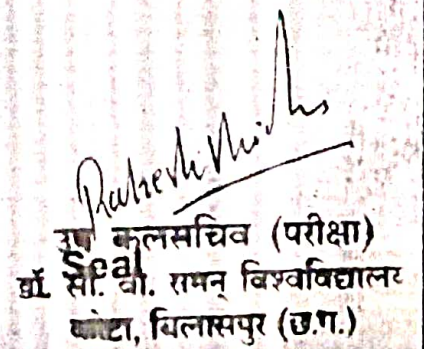 Rakesh
उप कुलसचिव (परीक्षा)
Seal
डॉ. सी. वी. रामन् विश्वविद्यालय
कोटा, बिलासपुर (छ.ग.)